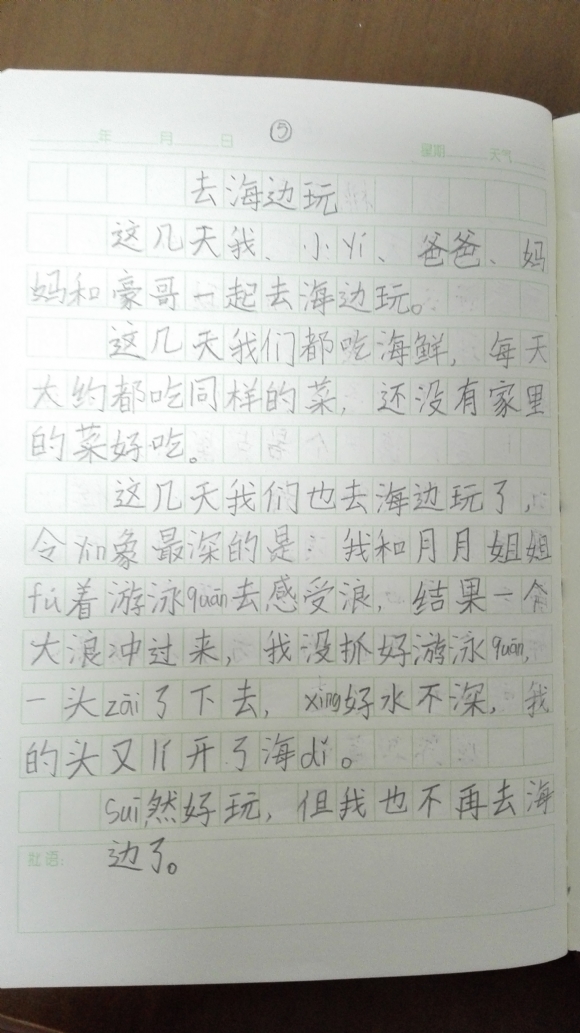 年 月 日 ⑤ 星期 天气
去海边玩
这几天我、小yí、爸爸、妈
妈和豪哥一起去海边玩。
这几天我们都吃海鲜，每天
大约都吃同样的菜，还没有家里
的菜好吃。
这几天我们也去海边玩了，
令yìn象最深的是：我和月月姐姐
fú着游泳quān去感受浪，结果一个
大浪冲过来，我没抓好游泳quān，
一头zāi了下去，xìng好水不深，我
的头又lí开了海dǐ。
Suī然好玩，但我也不再去海
批语：边了。